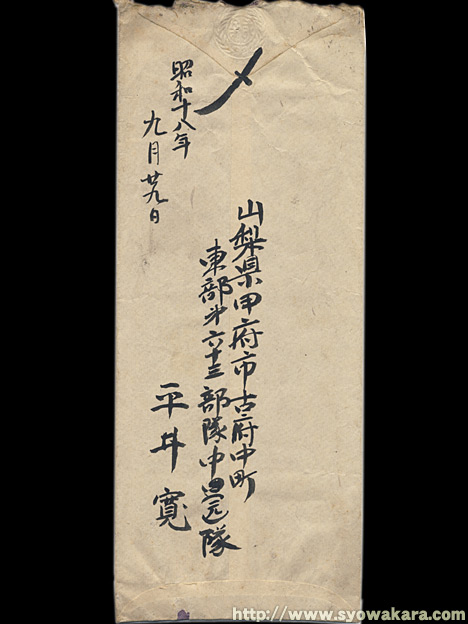 〆
山梨県甲府市古府中町
東部第六十三部隊中隊
平井寛
昭和十八年
九月廿九日
http://www.syowakara.com